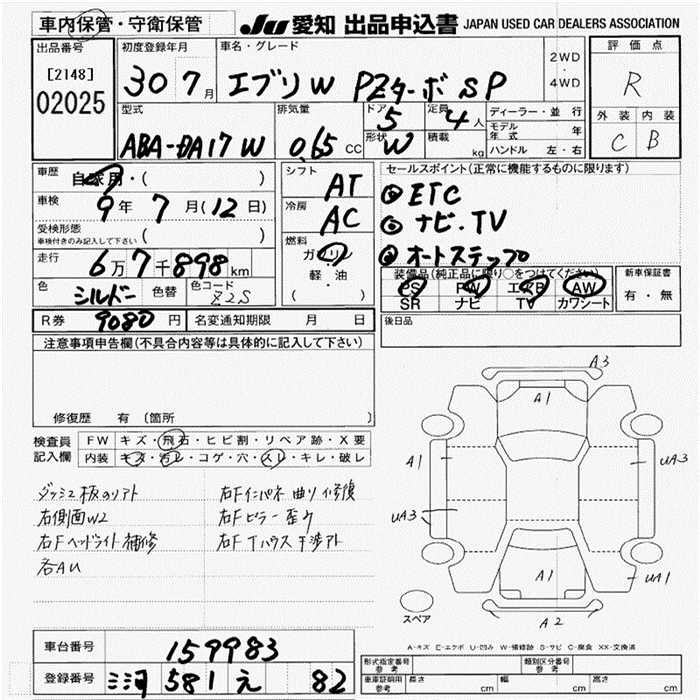 車内保管・守衛保管
JU 愛知 出品申込書 JAPAN USED CAR DEALERS ASSOCIATION
出品番号
[2148]
02025
初度登録年月
30 7月
車名・グレード
エブリW PZターボSP
2WD
・
4WD
評価点
R
外装 内装
C B
型式
ABA-DA17W
排気量
0.65 CC
ドア 5
形状 W
定員 4人
積載 kg
ディーラー・並行
モデル年式 年
ハンドル 左・右
車歴
自家用・( )
車検
9年 7月(12日)
受検形態
車検付きのみ記入して下さい ( )
走行
6万7千898km
色
シルバー 色替
色コード
Z2S
シフト
AT
冷房
AC
燃料
ガソリン
軽・油
( )
セールスポイント(正常に機能するものに限ります)
ETC
ナビ.TV
オートステップ
装備品(純正品に限り○をつけてください)
PS PW エアB AW
SR ナビ TV カワシート
新車保証書
有・無
R券 9080円 名変通知期限 月 日
後日品
注意事項申告欄(不具合内容等は具体的に記入して下さい)
修復歴 有 〔箇所 〕
検査員
記入欄
FW キズ・飛石・ヒビ割・リペア跡・X要
内装 キズ・汚レ・コゲ・穴・スレ・キレ・破レ
右側面W2
右Fヘッドライト補修
各AU
右Fインパネ曲り修復
右Fピラー歪ミ
右Fタイヤハウス干渉アト
A3
A1
A1
UA3
UA3
A1
UA1
A2
スペア
A-キズ E-エクボ U-凹み W-補修跡 S-サビ C-腐食 XX-交換済
車台番号 159983
登録番号 三河 581 え 82
形式指定番号
参考
類別区分番号
参考
車庫証明用
参考
長さ cm 幅 cm 高さ cm